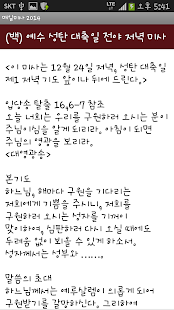 SKT LTE 오후 5:41
매일미사 2014
(백) 예수 성탄 대축일 전야 저녁 미사
<이 미사는 12월 24일 저녁, 성탄 대축일
제1 저녁 기도 앞이나 뒤에 드린다.>
입당송 탈출 16,6-7 참조
오늘 너희는 우리를 구원하러 오시는 분이
주님이심을 알게 되리라. 아침이 되면
주님의 영광을 보리라.
<대영광송>
본기도
하느님, 해마다 구원을 기다리는
저희에게 기쁨을 주시니, 저희를
구원하러 오시는 성자를 기꺼이
맞이하여, 심판하러 다시 오실 때에도
두려움 없이 뵈올 수 있게 하소서.
성자께서는 성부와 …….
말씀의 초대
하느님께서는 예루살렘이 의롭게 되어
구원받기를 갈망하신다. 그리하여